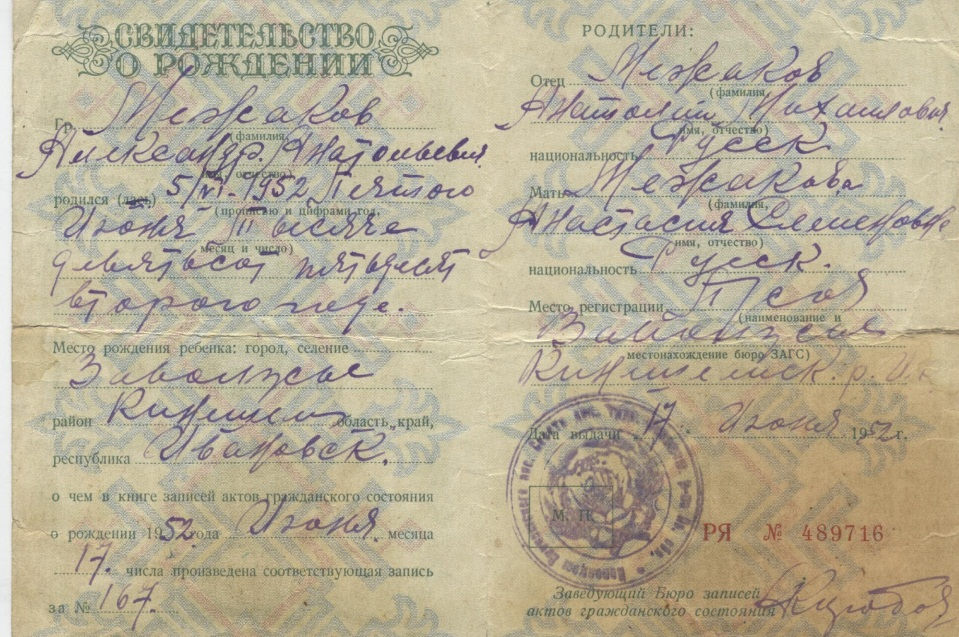 СВИДЕТЕЛЬСТВО
О РОЖДЕНИИ
Гр. Межаков
(фамилия,
Александр Анатольевич
имя, отчество)
родился (лась) 5/VI-1952 Пятого
(прописью и цифрами год,
Июня Тысяча
месяц и число)
девятьсот пятьдесят
второго года.
Место рождения ребенка: город, селение
Заволжье
район Кинешем область, край,
республика Ивановск.
о чем в книге записей актов гражданского состояния
о рождении 1952 года Июня месяца
17. числа произведена соответствующая запись
за № 167.
РОДИТЕЛИ:
Отец Межаков
(фамилия,
Анатолий Михайлович
имя, отчество)
национальность Русск
Мать Межакова
(фамилия,
Анастасия Семеновна
имя, отчество)
национальность Русск.
Место регистрации
(наименование и
Заволжье
местонахождение бюро ЗАГС)
Кинешемск. р.
Дата выдачи 17 Июня 1952 г.
М. П.
РЯ № 489716
Заведующий Бюро записей
актов гражданского состояния